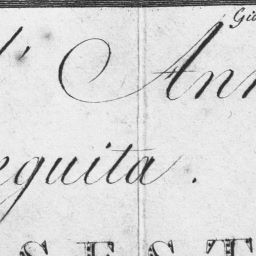 Gio
l' Ann
eguita.
SEST